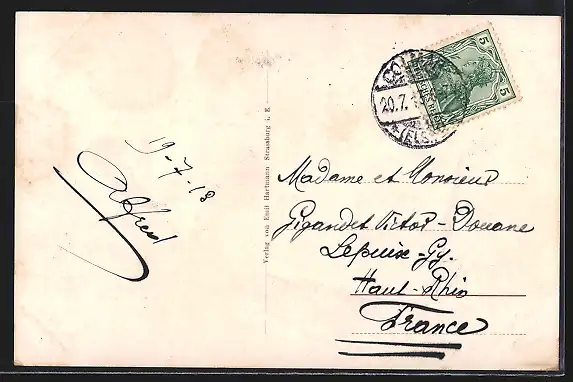 19-7-13
Alfred
Verlag von Emil Hartmann Strassburg i. E.
5
5
COLMAR
20.7.
(ELS.)
Madame et Monsieur
Gigandet Victor - Douane
Lepuix-Gy.
Haut-Rhin
France